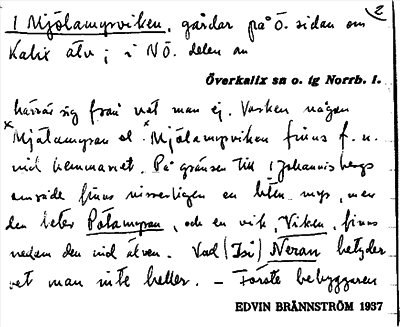 2
1 Mjölamyrviken, gårdar på Ö. sidan om
Kalix älv; i NÖ. delen av
Överkalix sn o. tg Norrb. l.
härrör sig från vet man ej. Varken någon
×Mjölamyran el. ×Mjölamyrviken finns f. n.
vid hemmanet. På gränsen till 1 Johannisbergs
område finns visserligen en liten myr, men
den heter Pålamyran, och en vik, Viken, finns
nedom den vid älven. Vad (Isi) Neran betyder
vet man inte heller. – Förste bebyggaren
EDVIN BRÄNNSTRÖM 1937